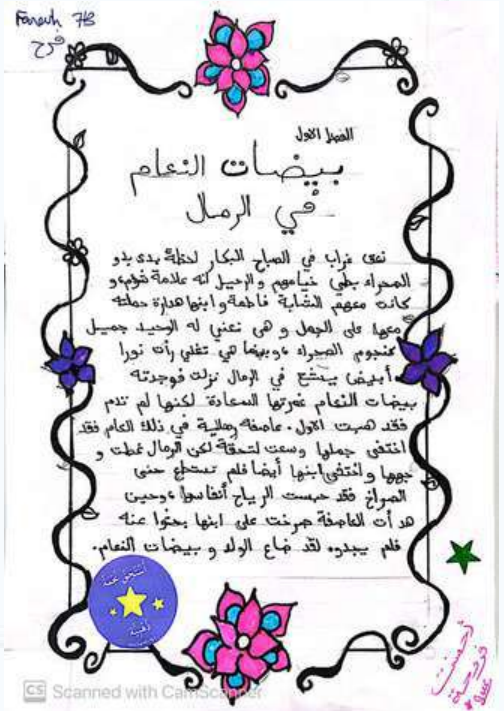 Farah 7B
فرح
الفصل الاول
بيضات النعام
في الرمال
نعق غراب في الصباح البكار لحظة بدى بدو
الصحراء بطي خيامهم و الرحيل انه علامة شؤم، و
كانت معهم الشابة فاطمة و ابنها هدارة حملته
معها على الجمل و هي تغني له الوحيد جميل
كنجوم الصحراء ، وبينما هي تغني رأت نورا
أبيض يشع في الرمال نزلت فوجدته
بيضات النعام غمرتها السعادة لكنها لم تدم
فقد هبت الاول. عاصفة رملية في ذلك العام فقد
اختفى جملها وسعت لتحقة لكن الرمال غطت و
جهها و اختفى ابنها أيضا فلم تستطع حتى
الصراخ فقد حبست الرياح أنفاسها ، وحين
هدأت العاصفة صرخت على ابنها بحثوا عنه
فلم يجدوه لقد ضاع الولد و بيضات النعام.
أستحق نجمة
ذهبية
أحسنت
CS Scanned with CamScanner